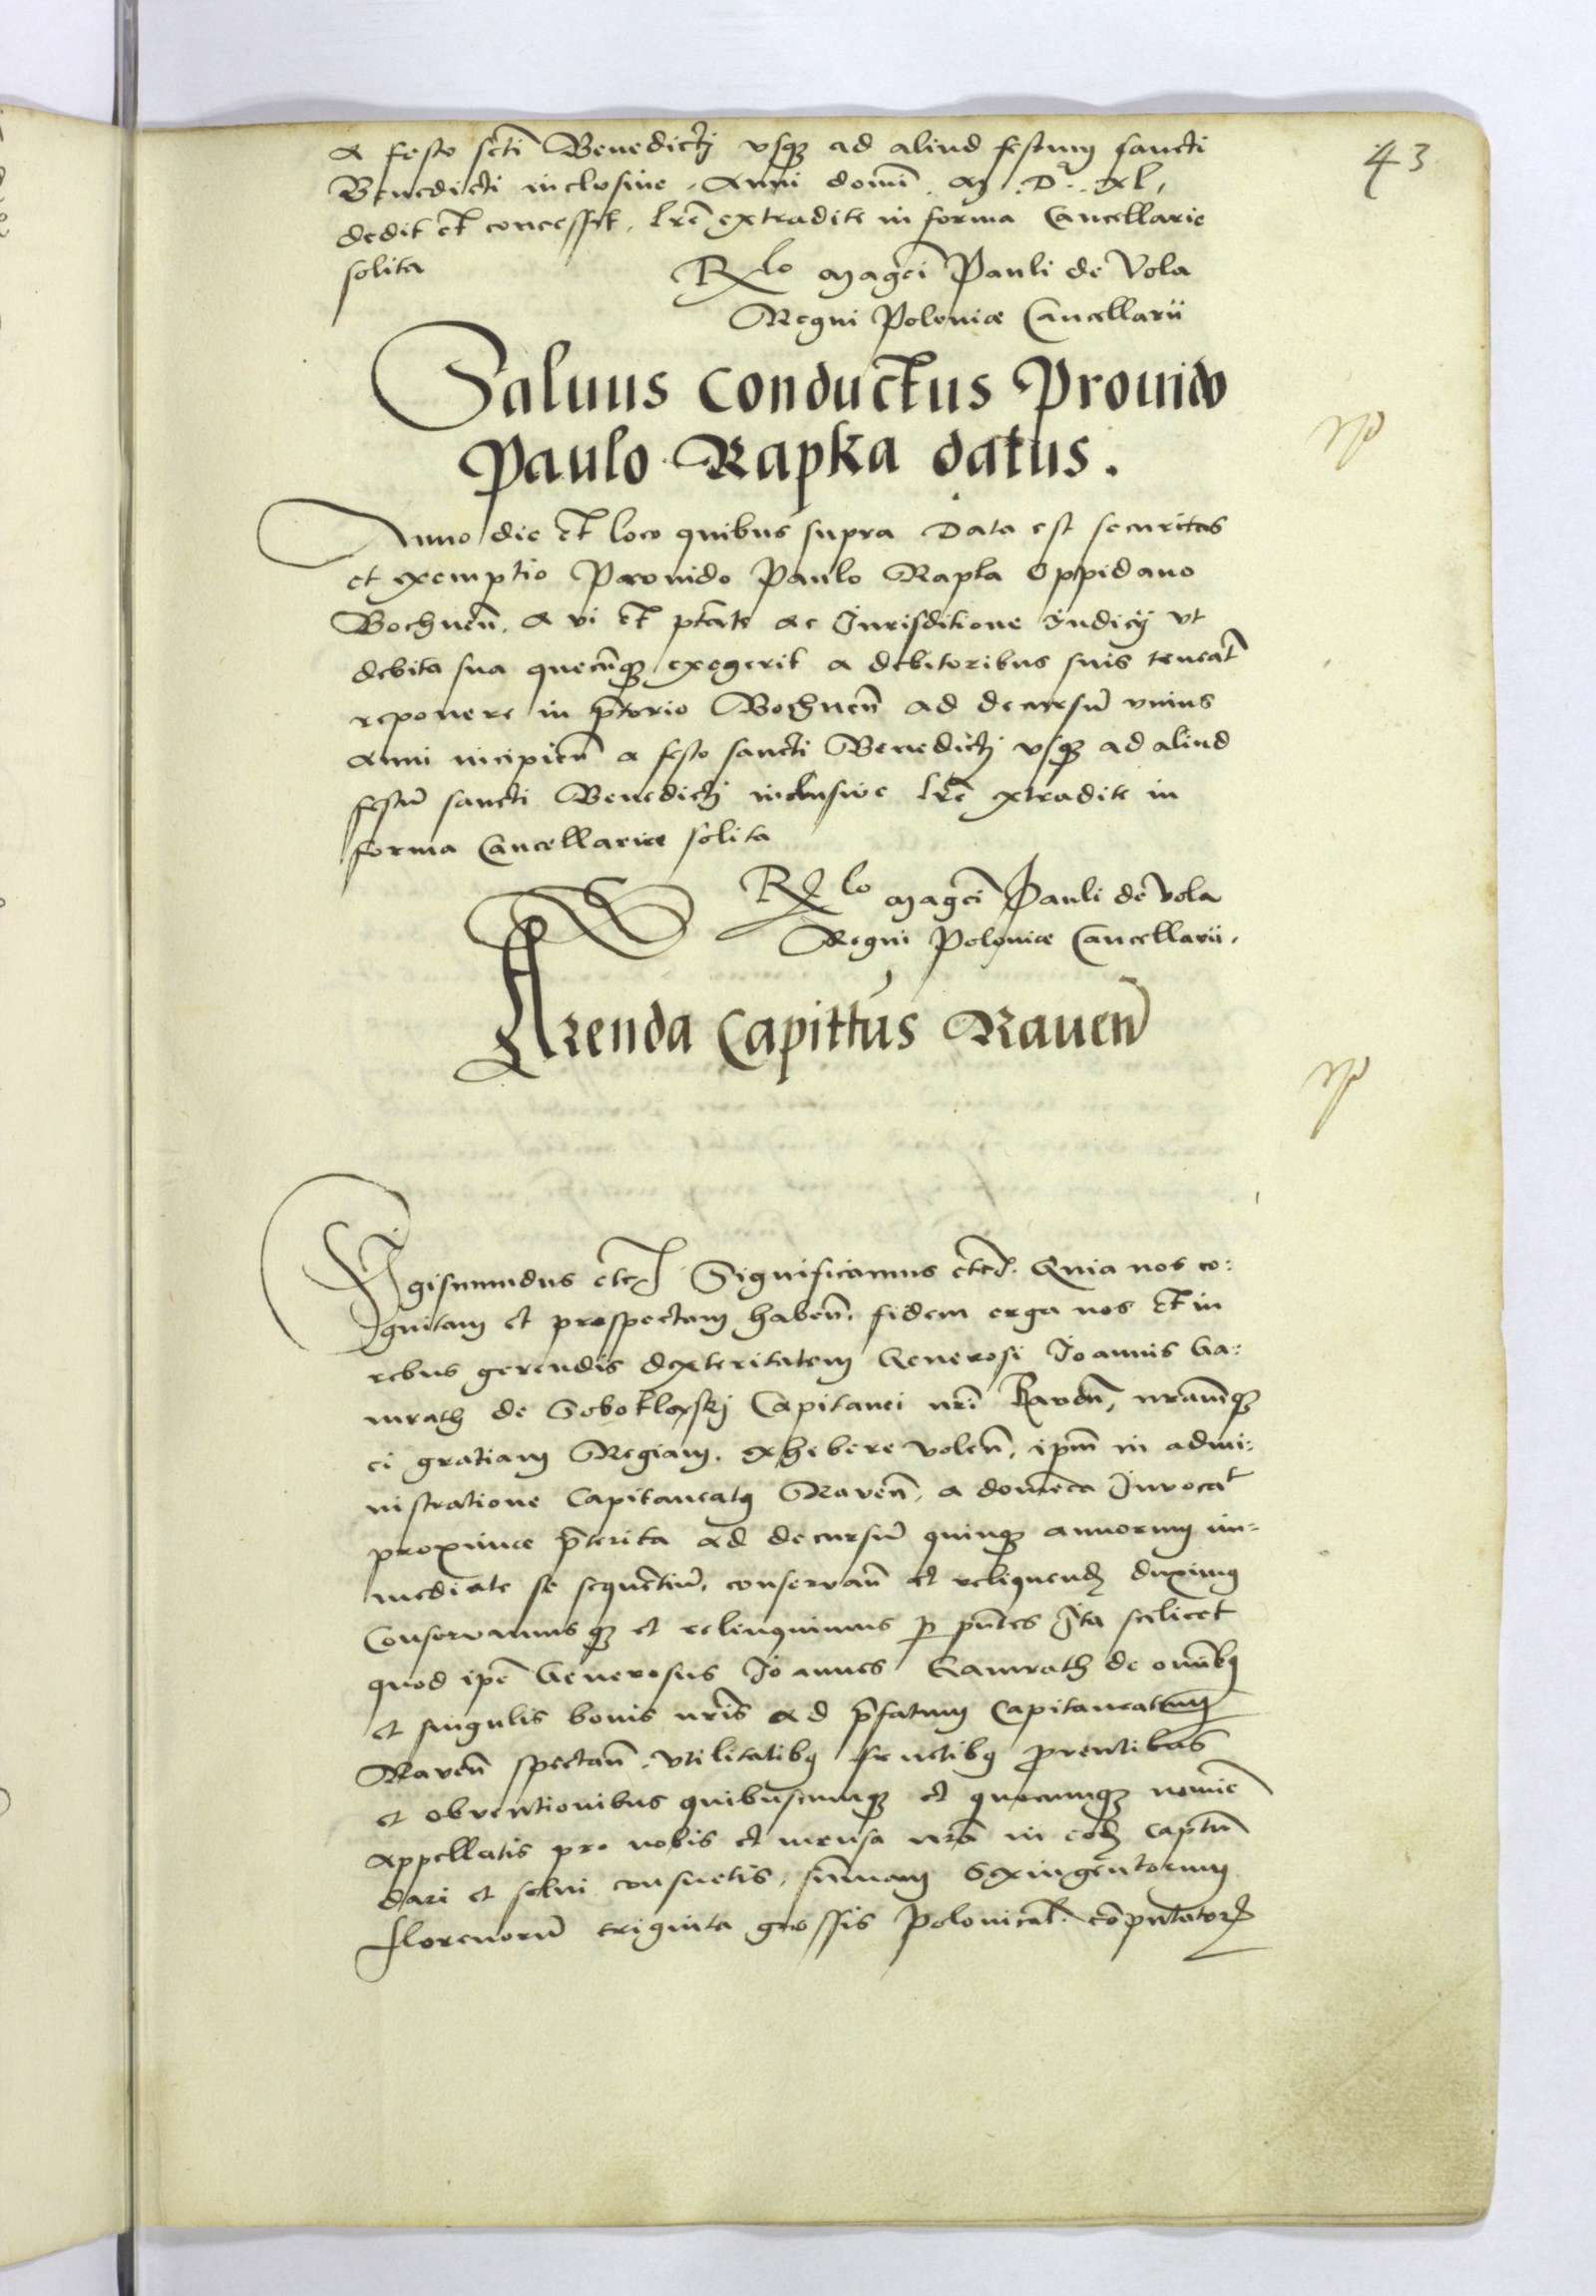 43
a festo scti Benedictj vsq3 ad aliud festum sancti
Benedicti inclusiue, Anni domi. M. D. XL,
dedit et concessit, lrē extradite in forma Cancellarie
solita
Rlo magci Pauli de Vola
Regni Poloniæ Cancellarii
Saluus conductus Prouido
Paulo Rapka datus.
Anno die et loco quibus supra Data est securitas
et exemptio Prouido Paulo Rapka Oppidano
Bochneñ. a vi et ptāte ac Jurisditione Judicij vt
debita sua quecūq3 exegerit a debitoribus suis teneat
reponere in p̄torio Bochneñ ad decursū vnius
Anni incipieñ a festo sancti Benedictj vsq3 ad aliud
festū sancti Benedictj inclusiue lrē extradite in
forma Cancellariæ solita
Rlo magci Pauli de Vola
Regni Poloniæ Cancellarii.
Arenda Capittus Raueñ
Sigismundus etc Significamus etc. Quia nos co:
gnitam et prospectam habeñ. fidem erga nos et in
rebus gerendis dexteritatem Generosi Joannis Ga:
mrath de Soboklexskj Capitanei nri Raveñ, nramq3
ei gratiam Regiam. exhibere voleñ, ipm in admi:
nistratione Capitaneatus Raveñ, a domēca Invocat
proxime p̄terita ad decursū quinq3 annorum im=
mediate se sequētiū, conservañ et relinquend duximus
Conservamusq3 et relinquimus p pñtes Ita scilicet
quod ipē Generosus Joannes Gamrath de omībus
et singulis bonis nris ad p̄fatum Capitaneatum
Raveñ spectañ. vtilitatibus fructibus proventibus
et obventionibus quibuscumq3 et quocumq3 nomīe
appellatis pro nobis et mensa nra in eod Captū
dari et solui consuetis, summam Sexingentorum
florenorū triginta grossis Polonical. cōputator